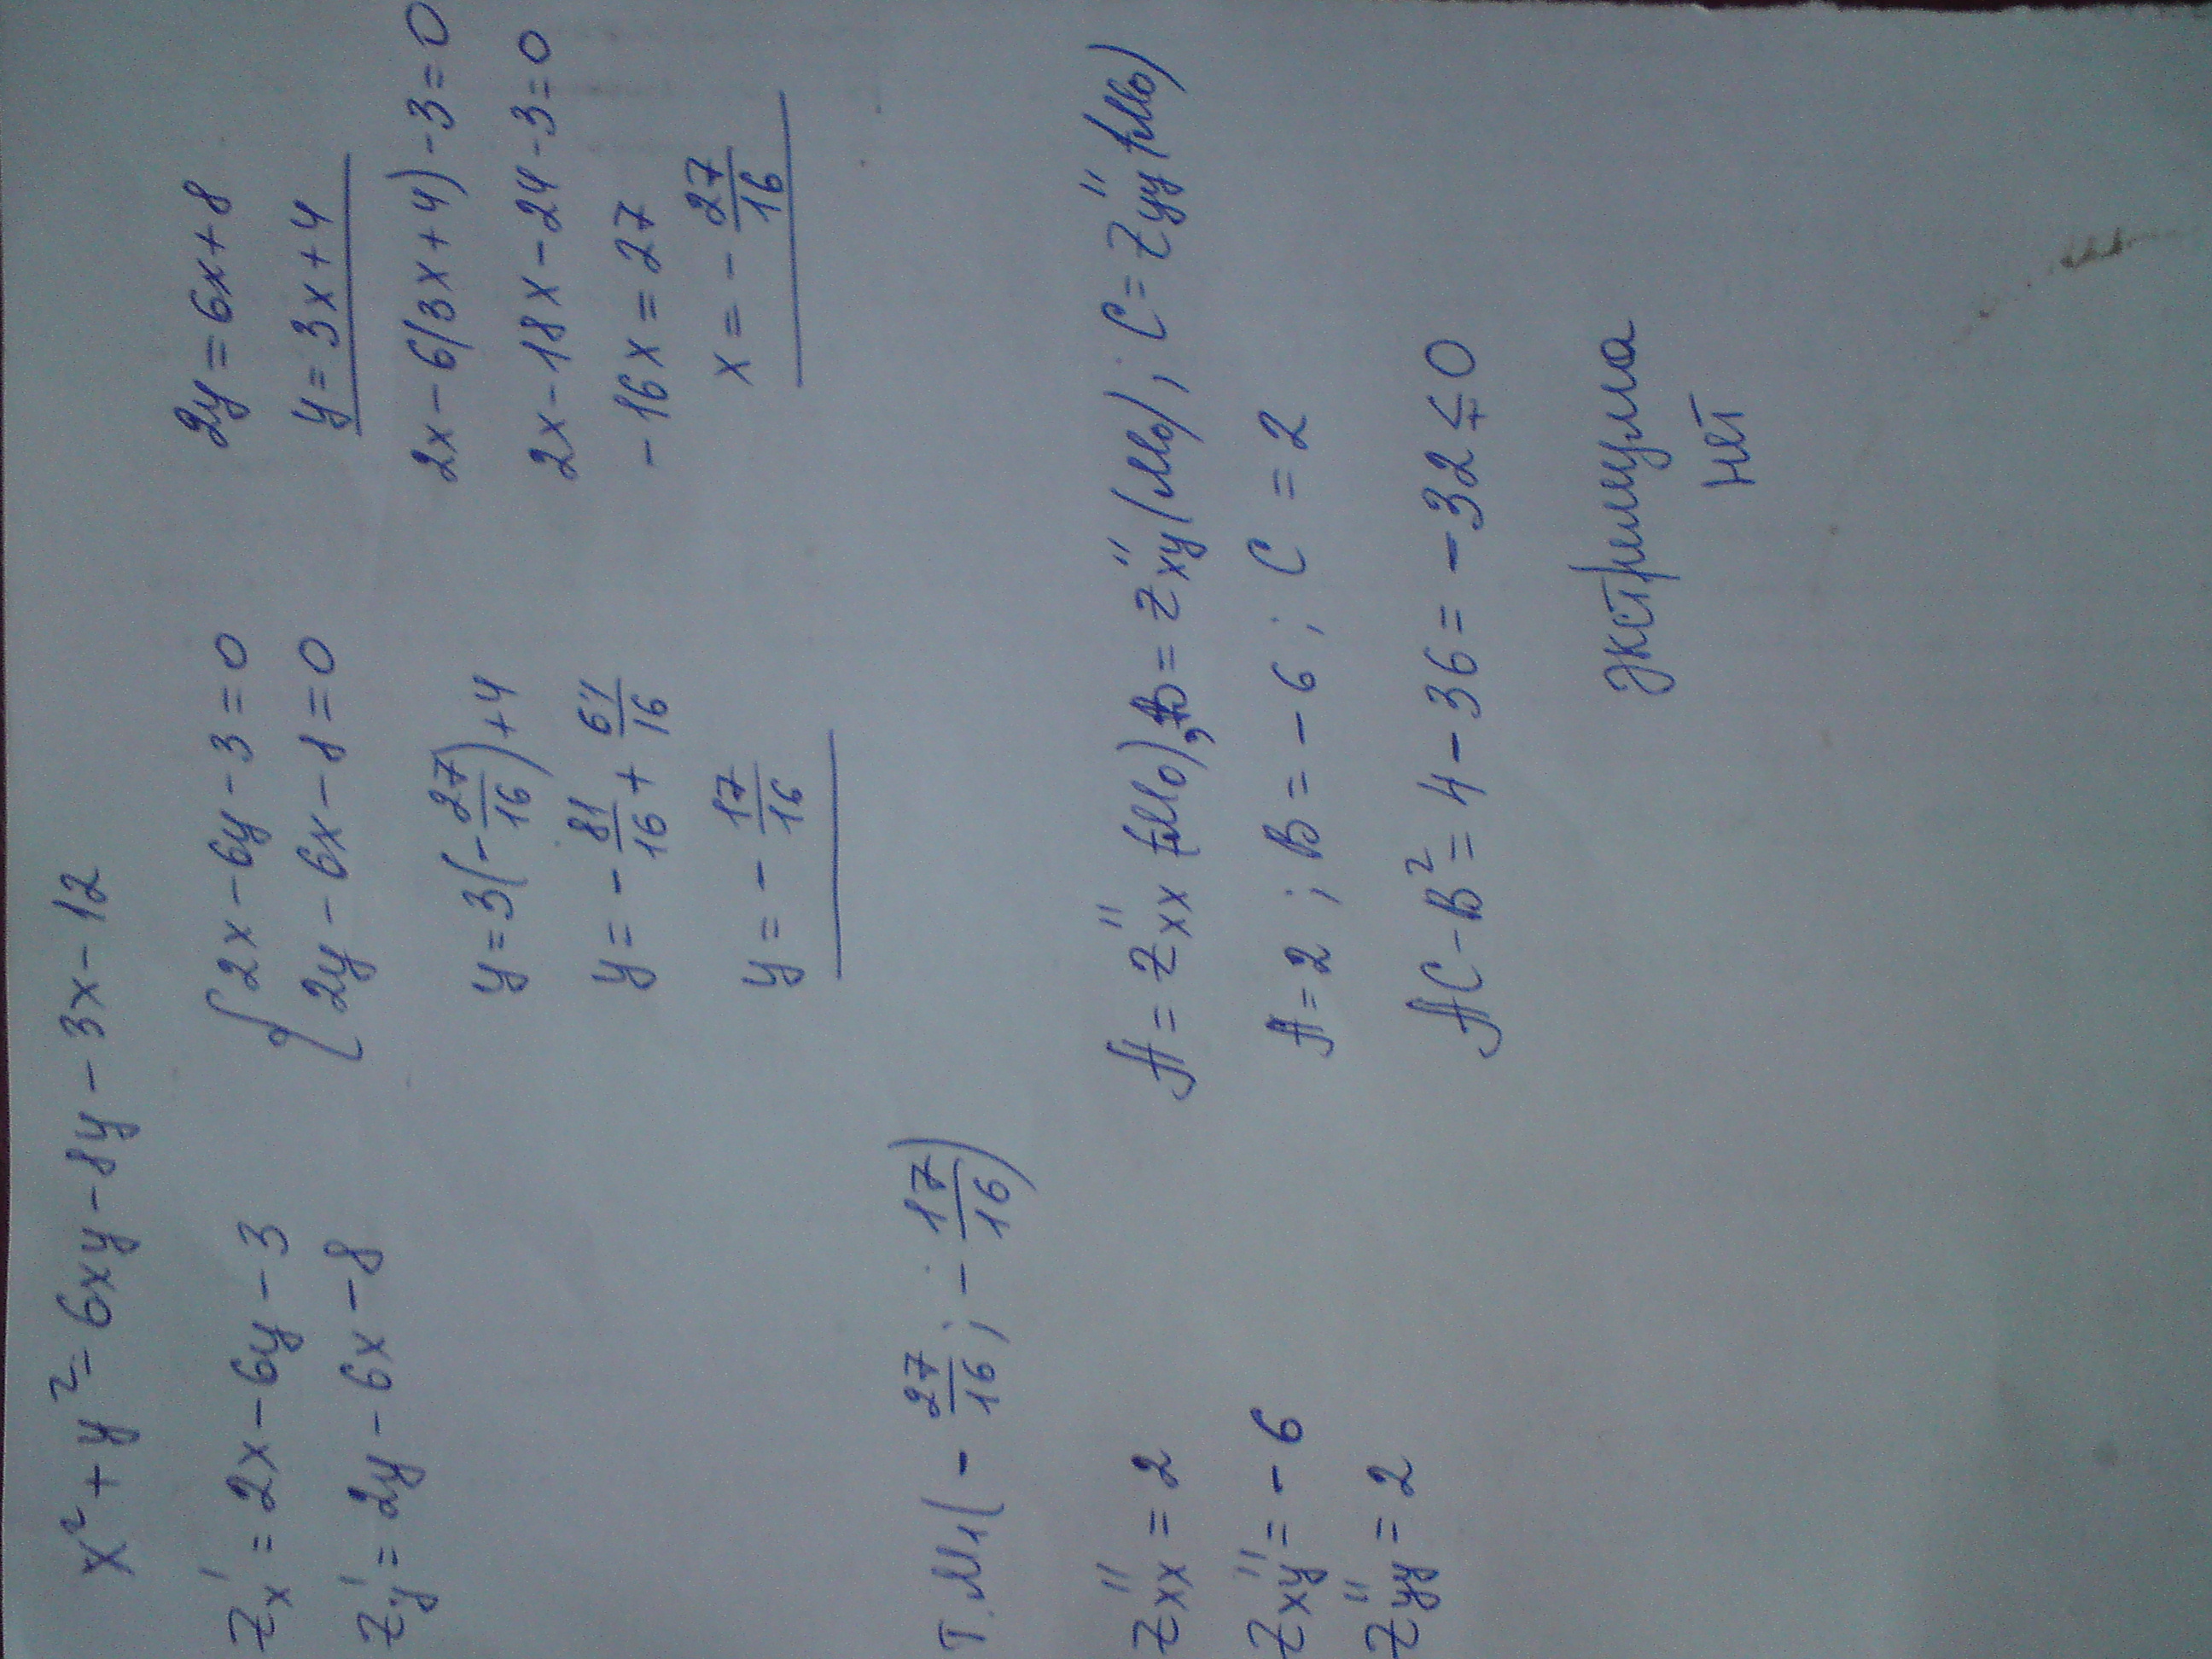 x² + y² - 6xy - 8y - 3x - 12
z'x = 2x - 6y - 3
z'y = 2y - 6x - 8
{ 2x - 6y - 3 = 0
2y - 6x - 8 = 0
2y = 6x + 8
y = 3x + 4
2x - 6(3x + 4) - 3 = 0
2x - 18x - 24 - 3 = 0
-16x = 27
x = - 27/16
y = 3(- 27/16) + 4
y = - 81/16 + 64/16
y = - 17/16
т. M₁(- 27/16; - 17/16)
z''xx = 2
z''xy = - 6
z''yy = 2
A = z''xx (M₀), B = z''xy (M₀); C = z''yy (M₀)
A = 2; B = - 6; C = 2
AC - B² = 4 - 36 = - 32 ≤ 0
экстримума
нет